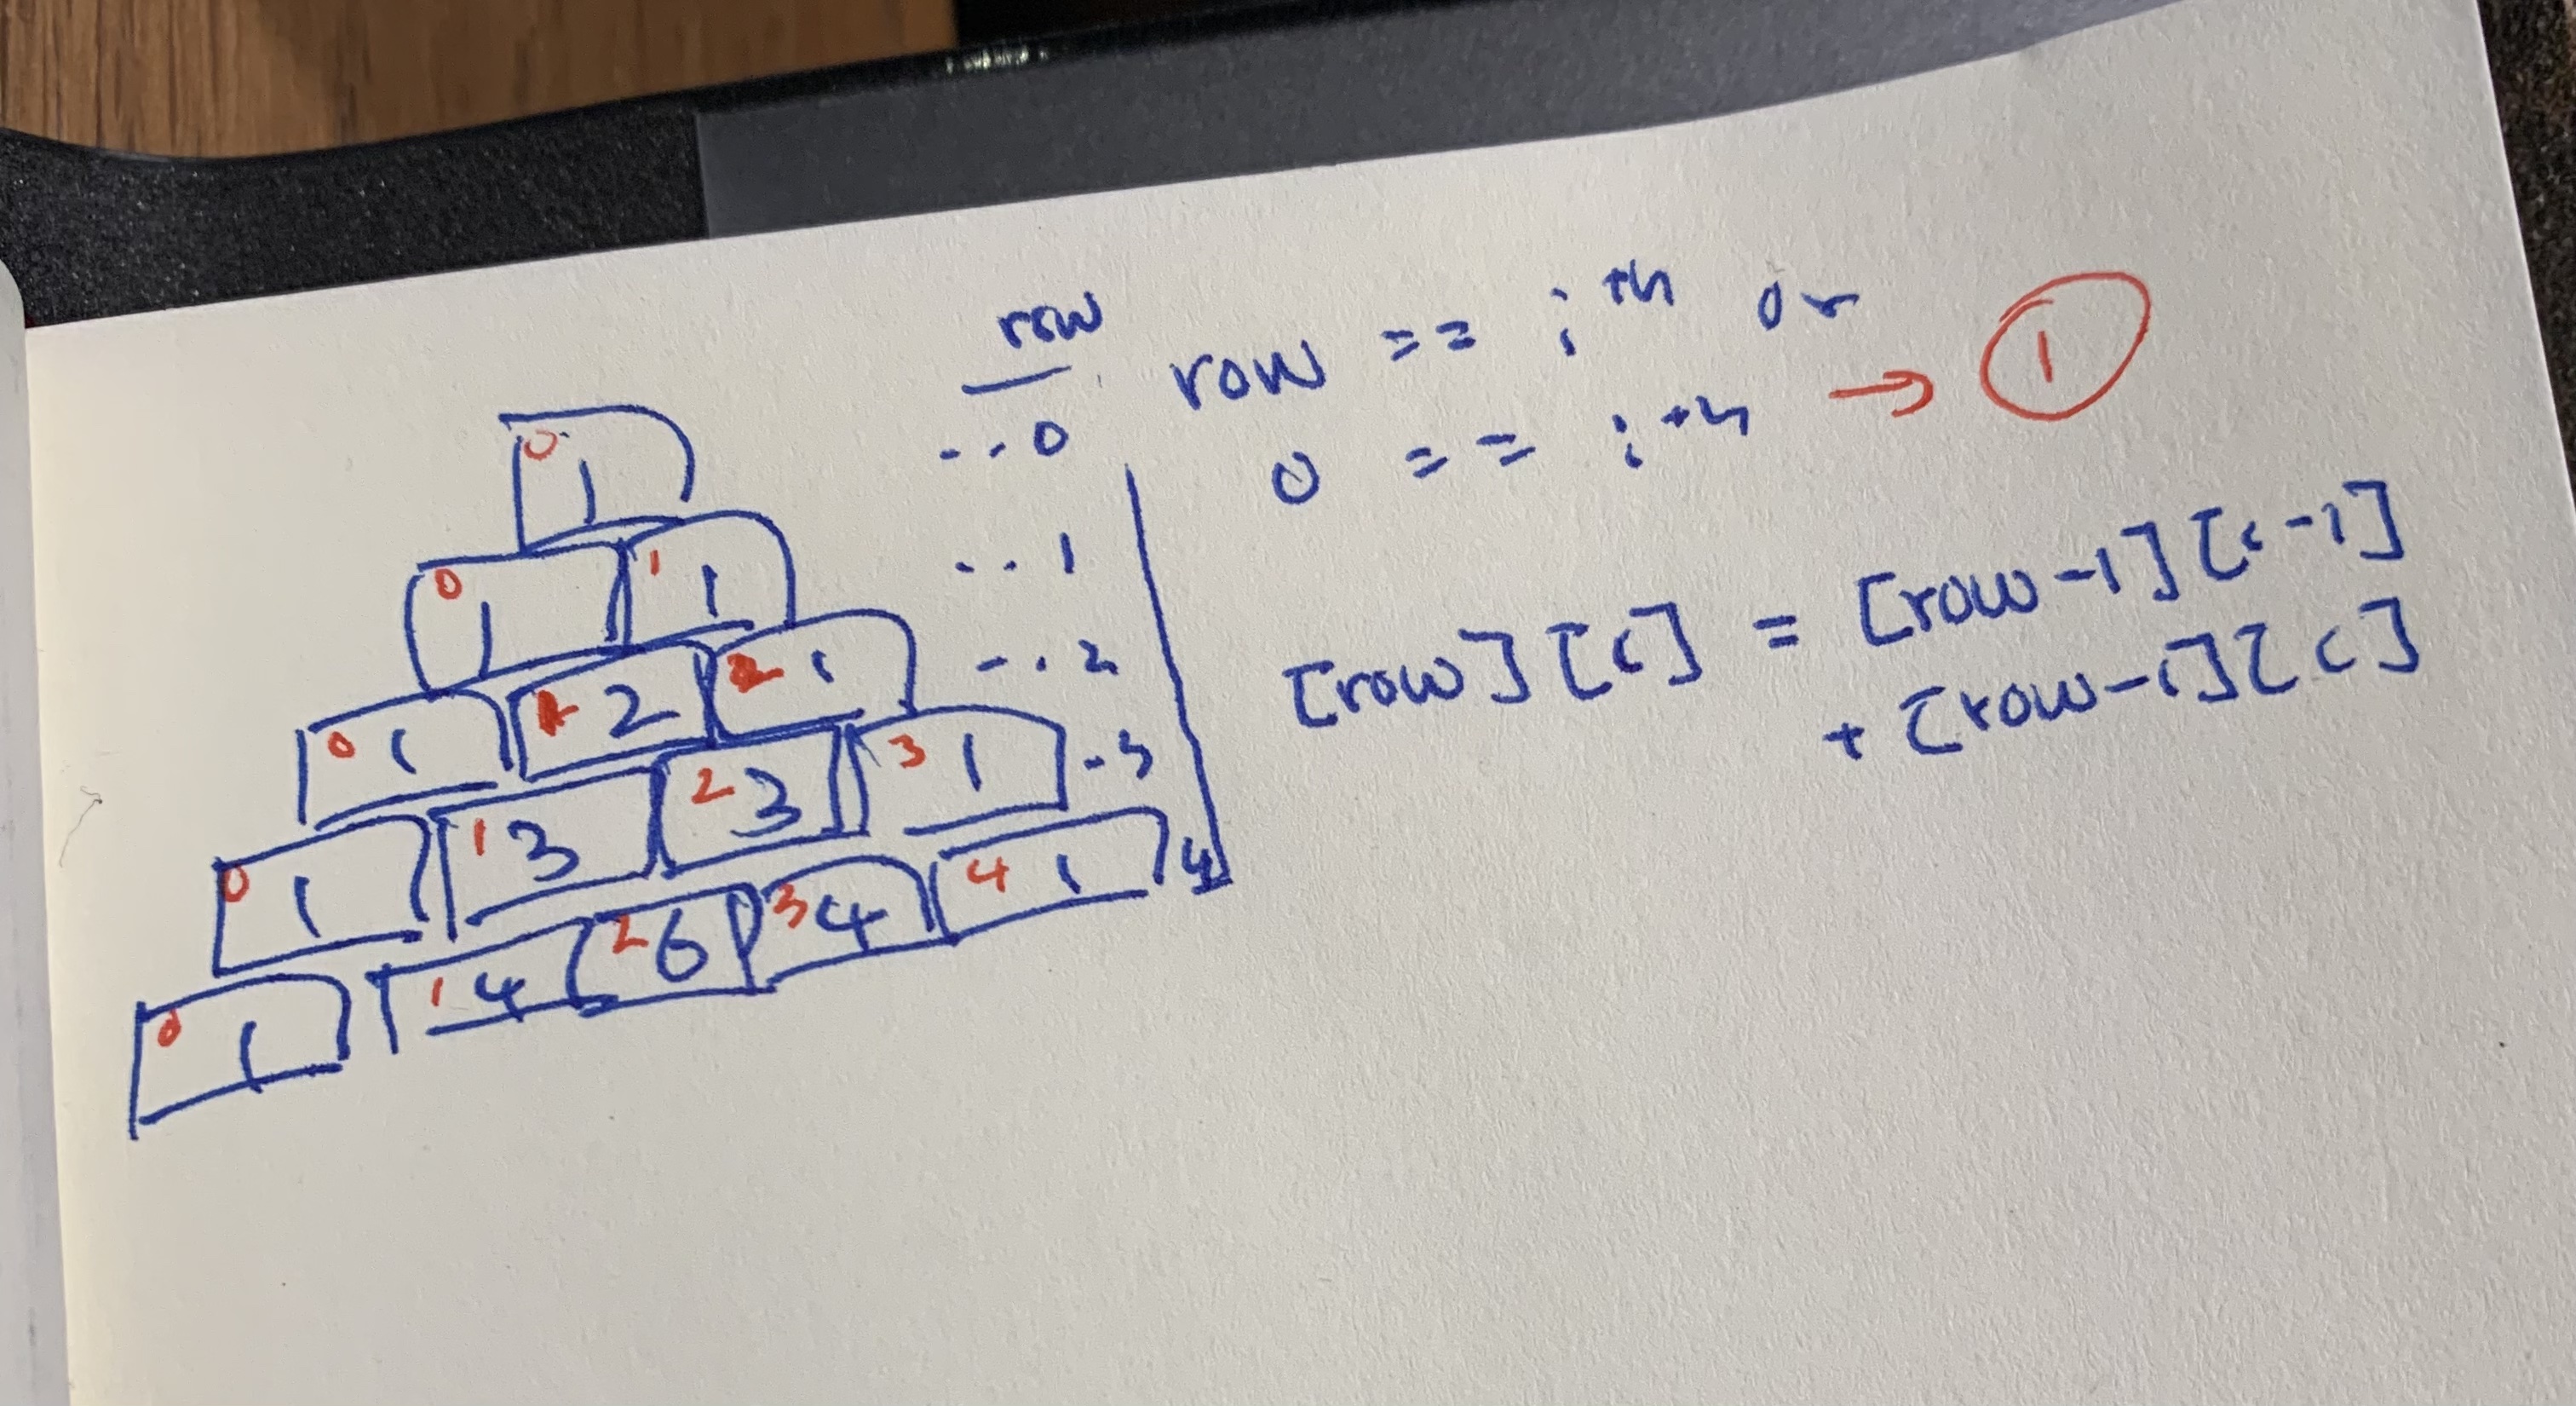 row
0 1 ..0
0 1 1 1 ..1
0 1 1 2 2 1 -..2
0 1 1 3 2 3 3 1 -3
0 1 1 4 2 6 3 4 4 1 4
row == ith or
0 == ith → 1
[row][c] = [row-1][c-1]
+ [row-1][c]